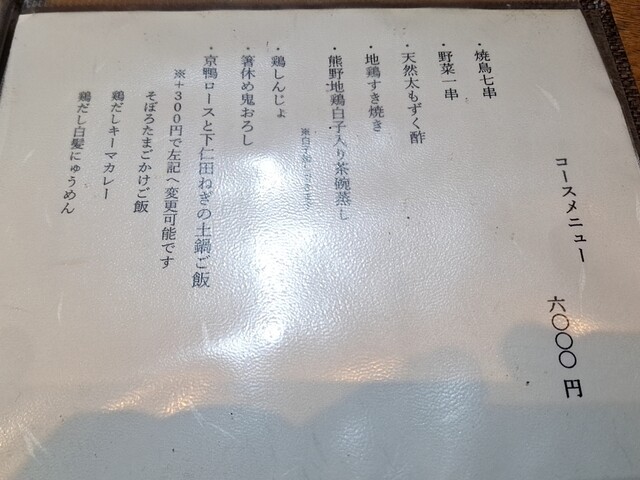 コースメニュー 六〇〇〇円
・焼鳥七串
・野菜一串
・天然太もずく酢
・地鶏すき焼き
・熊野地鶏白子入り茶碗蒸し
・鶏しんじょ
・箸休め鬼おろし
・京鴨ロースと下仁田ねぎの土鍋ご飯
※+300円で左記へ変更可能です
そぼろたまごかけご飯
鶏だしキーマカレー
鶏だし白髪にゅうめん